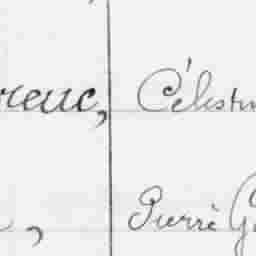 reuc, Célestin
, Pierre G